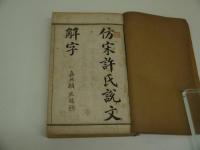 仿宋許氏説文
解字